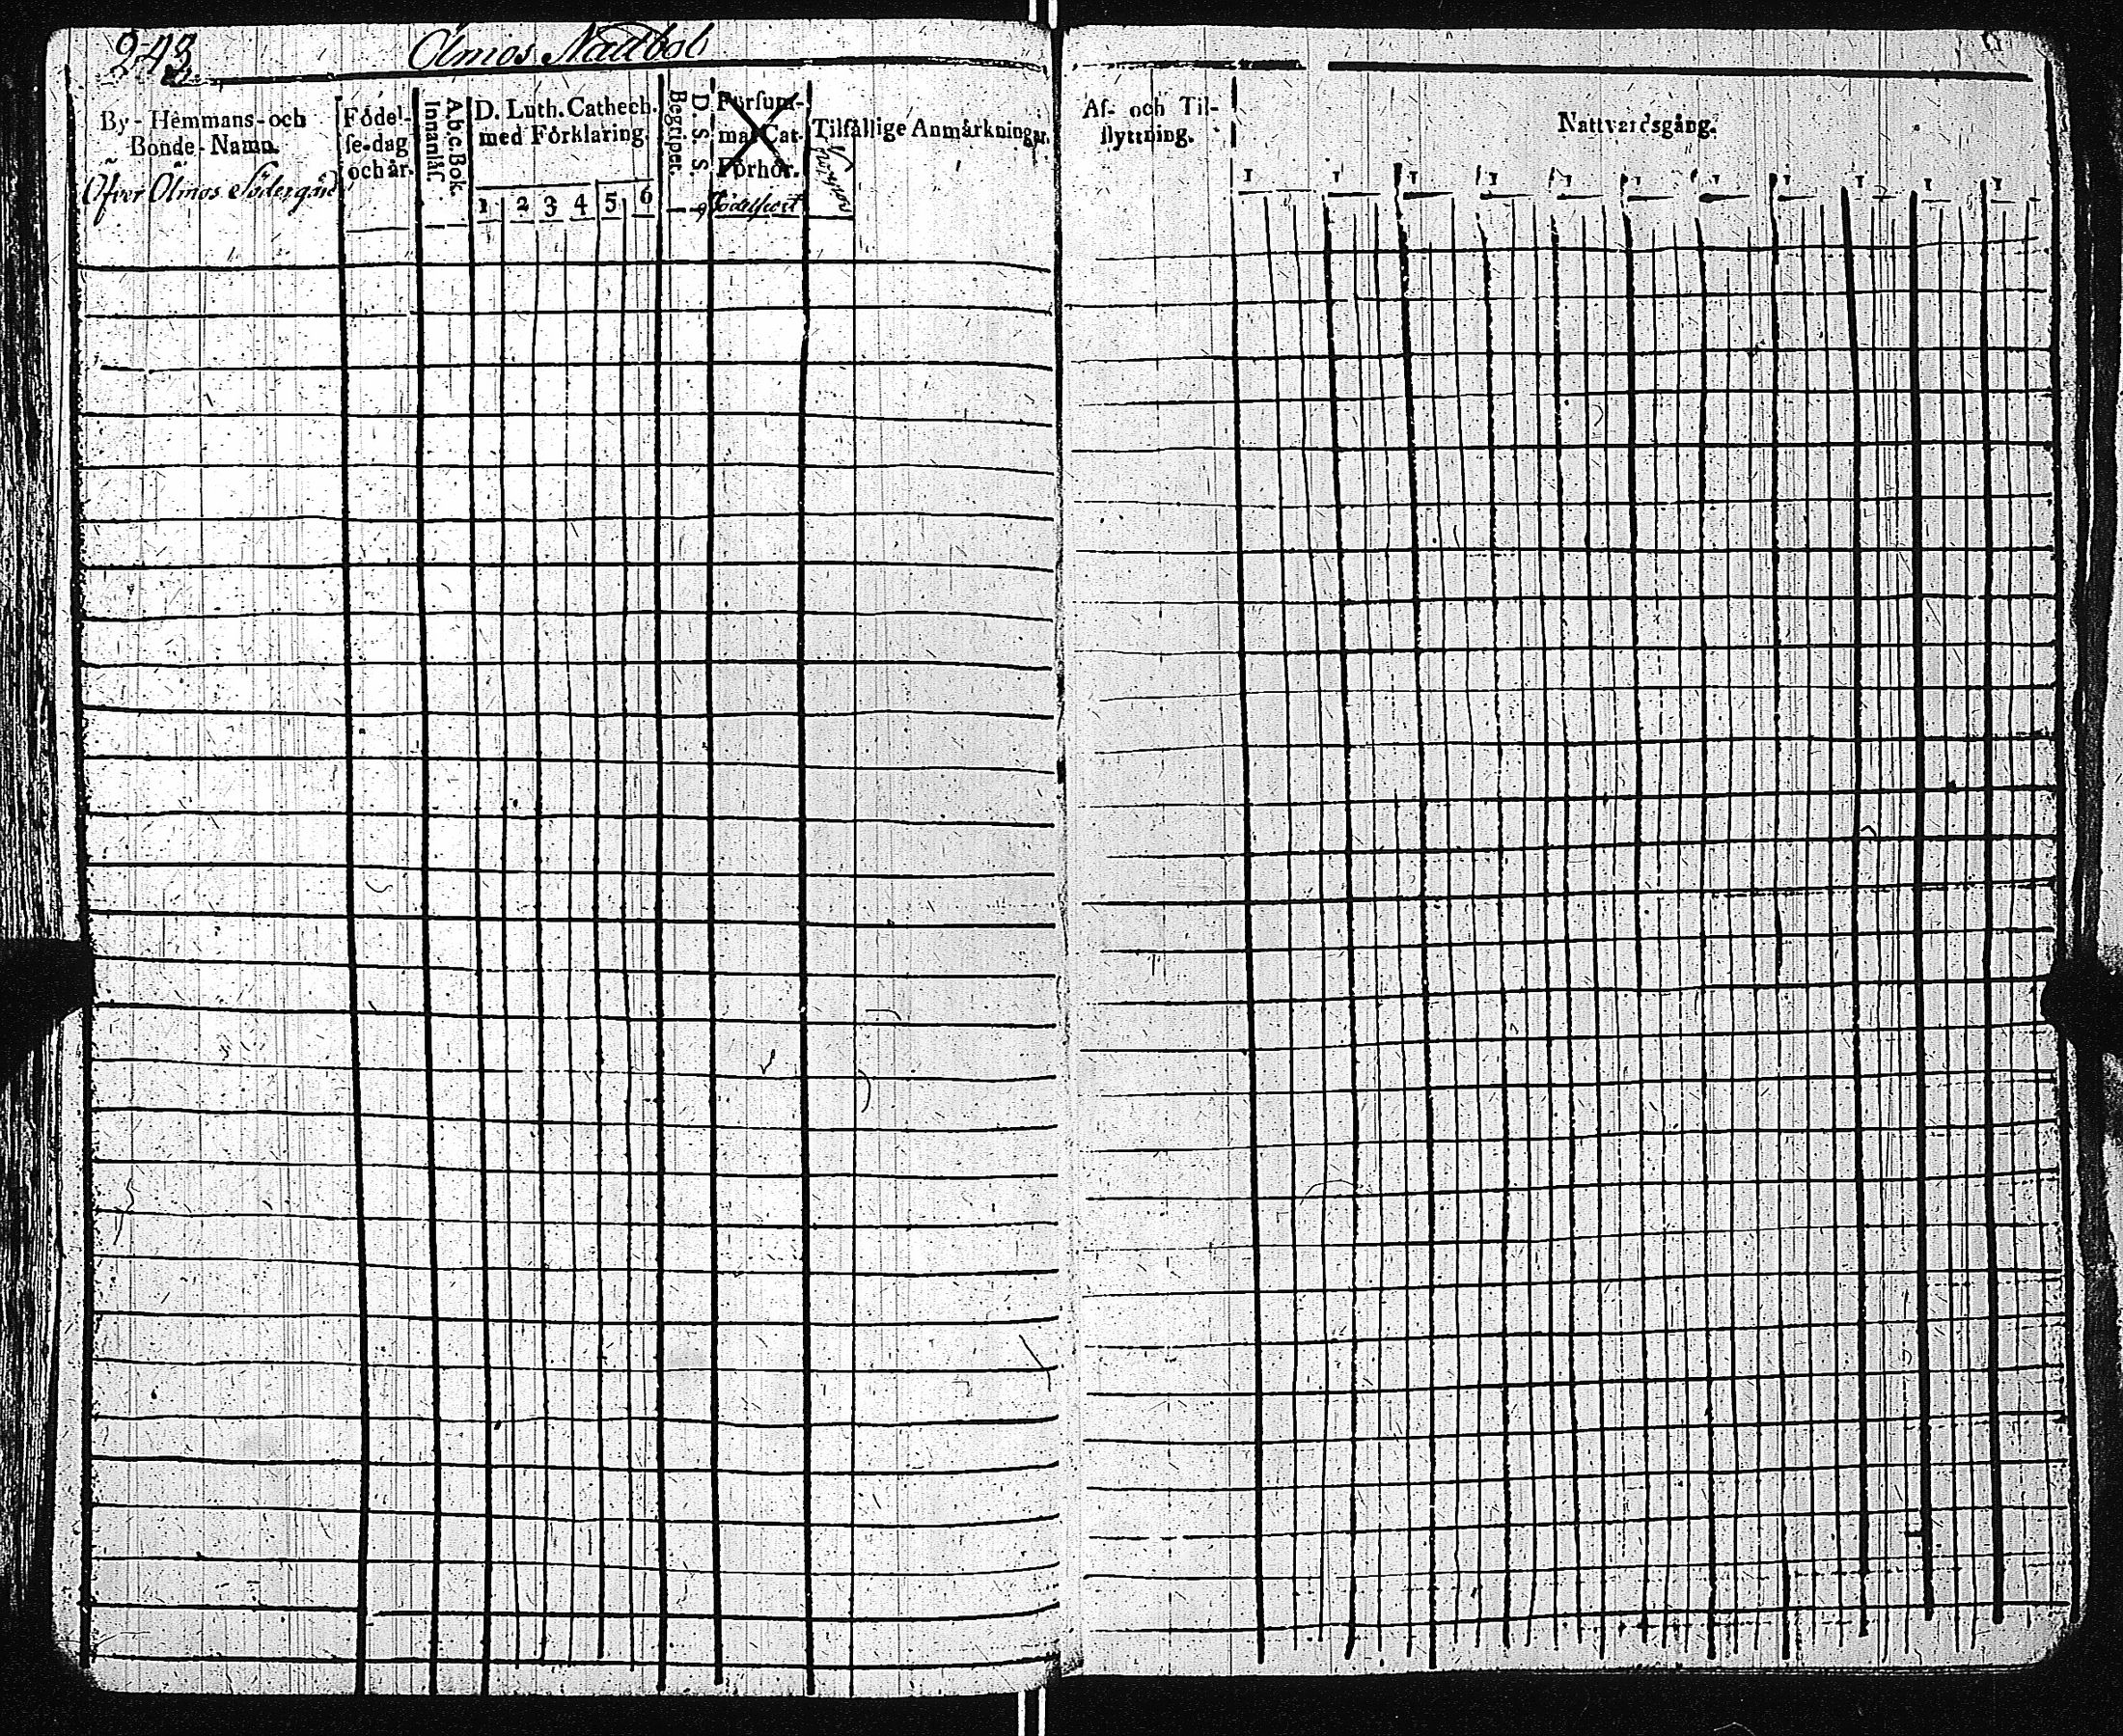 243
Ölmos Nattbol
By- Hemmans- och
Bonde-Namn.
Öfver Ölmos Södergård
Födel-
se-dag
och år.
A.b.c.Bok.
Innanläs.
D. Luth. Cathech.
med Förklaring.
1 2 3 4 5 6
D. S. S.
Begripet.
Försum-
mat Cat-
Förhör.
Födelseort
Tilfällige Anmärkningar.
Af- och Til-
flyttning.
Nattvardsgång.
1 1 1 1 1 1 1 1 1 1 1